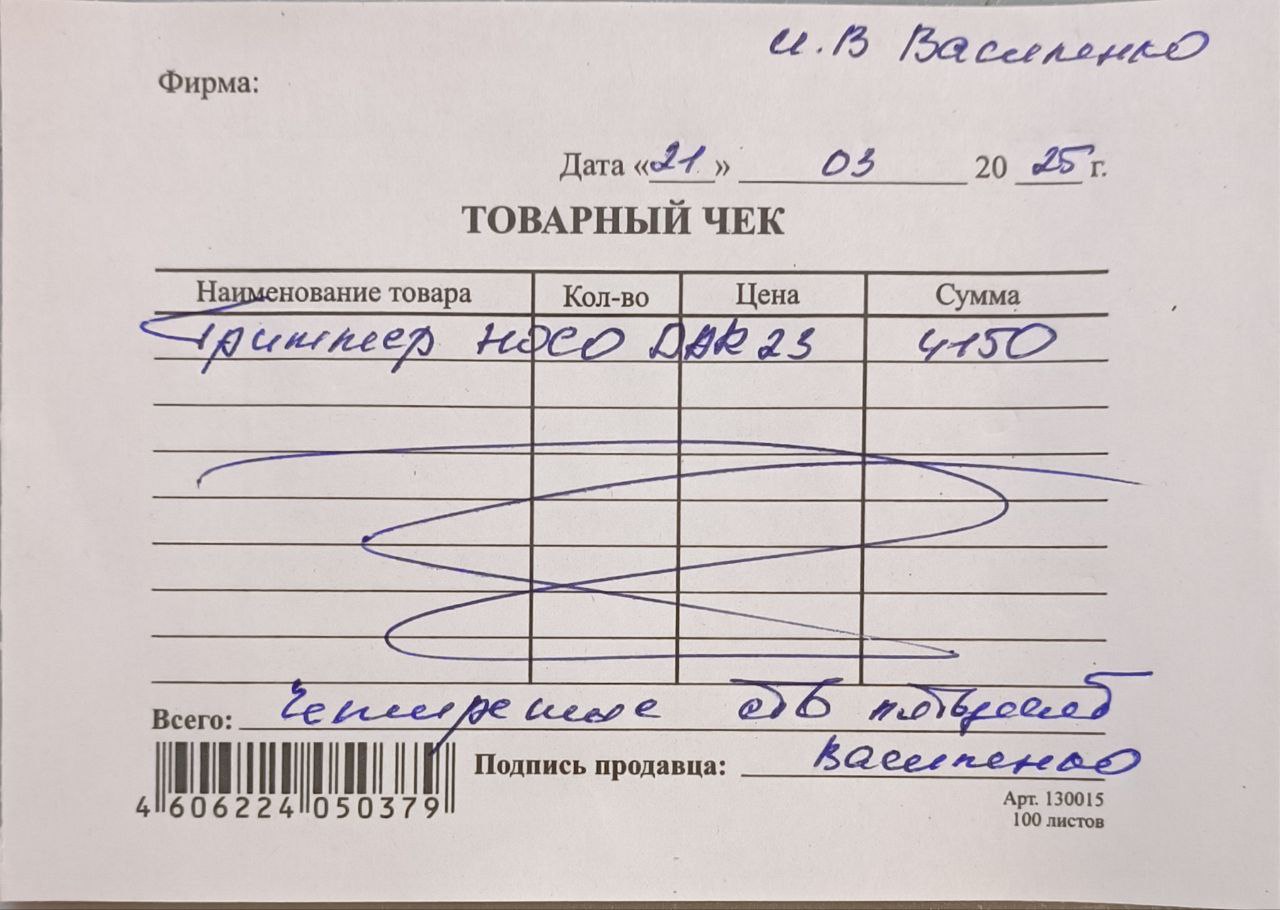 И.В Василенко
Фирма:
Дата «21» 03 2025 г.
ТОВАРНЫЙ ЧЕК
Наименование товара Кол-во Цена Сумма
Триммер HOCO DAR23 4150
Всего: Четыре тыс сто пятьдесят
4 606224 050379
Подпись продавца: Василенко
Арт. 130015
100 листов